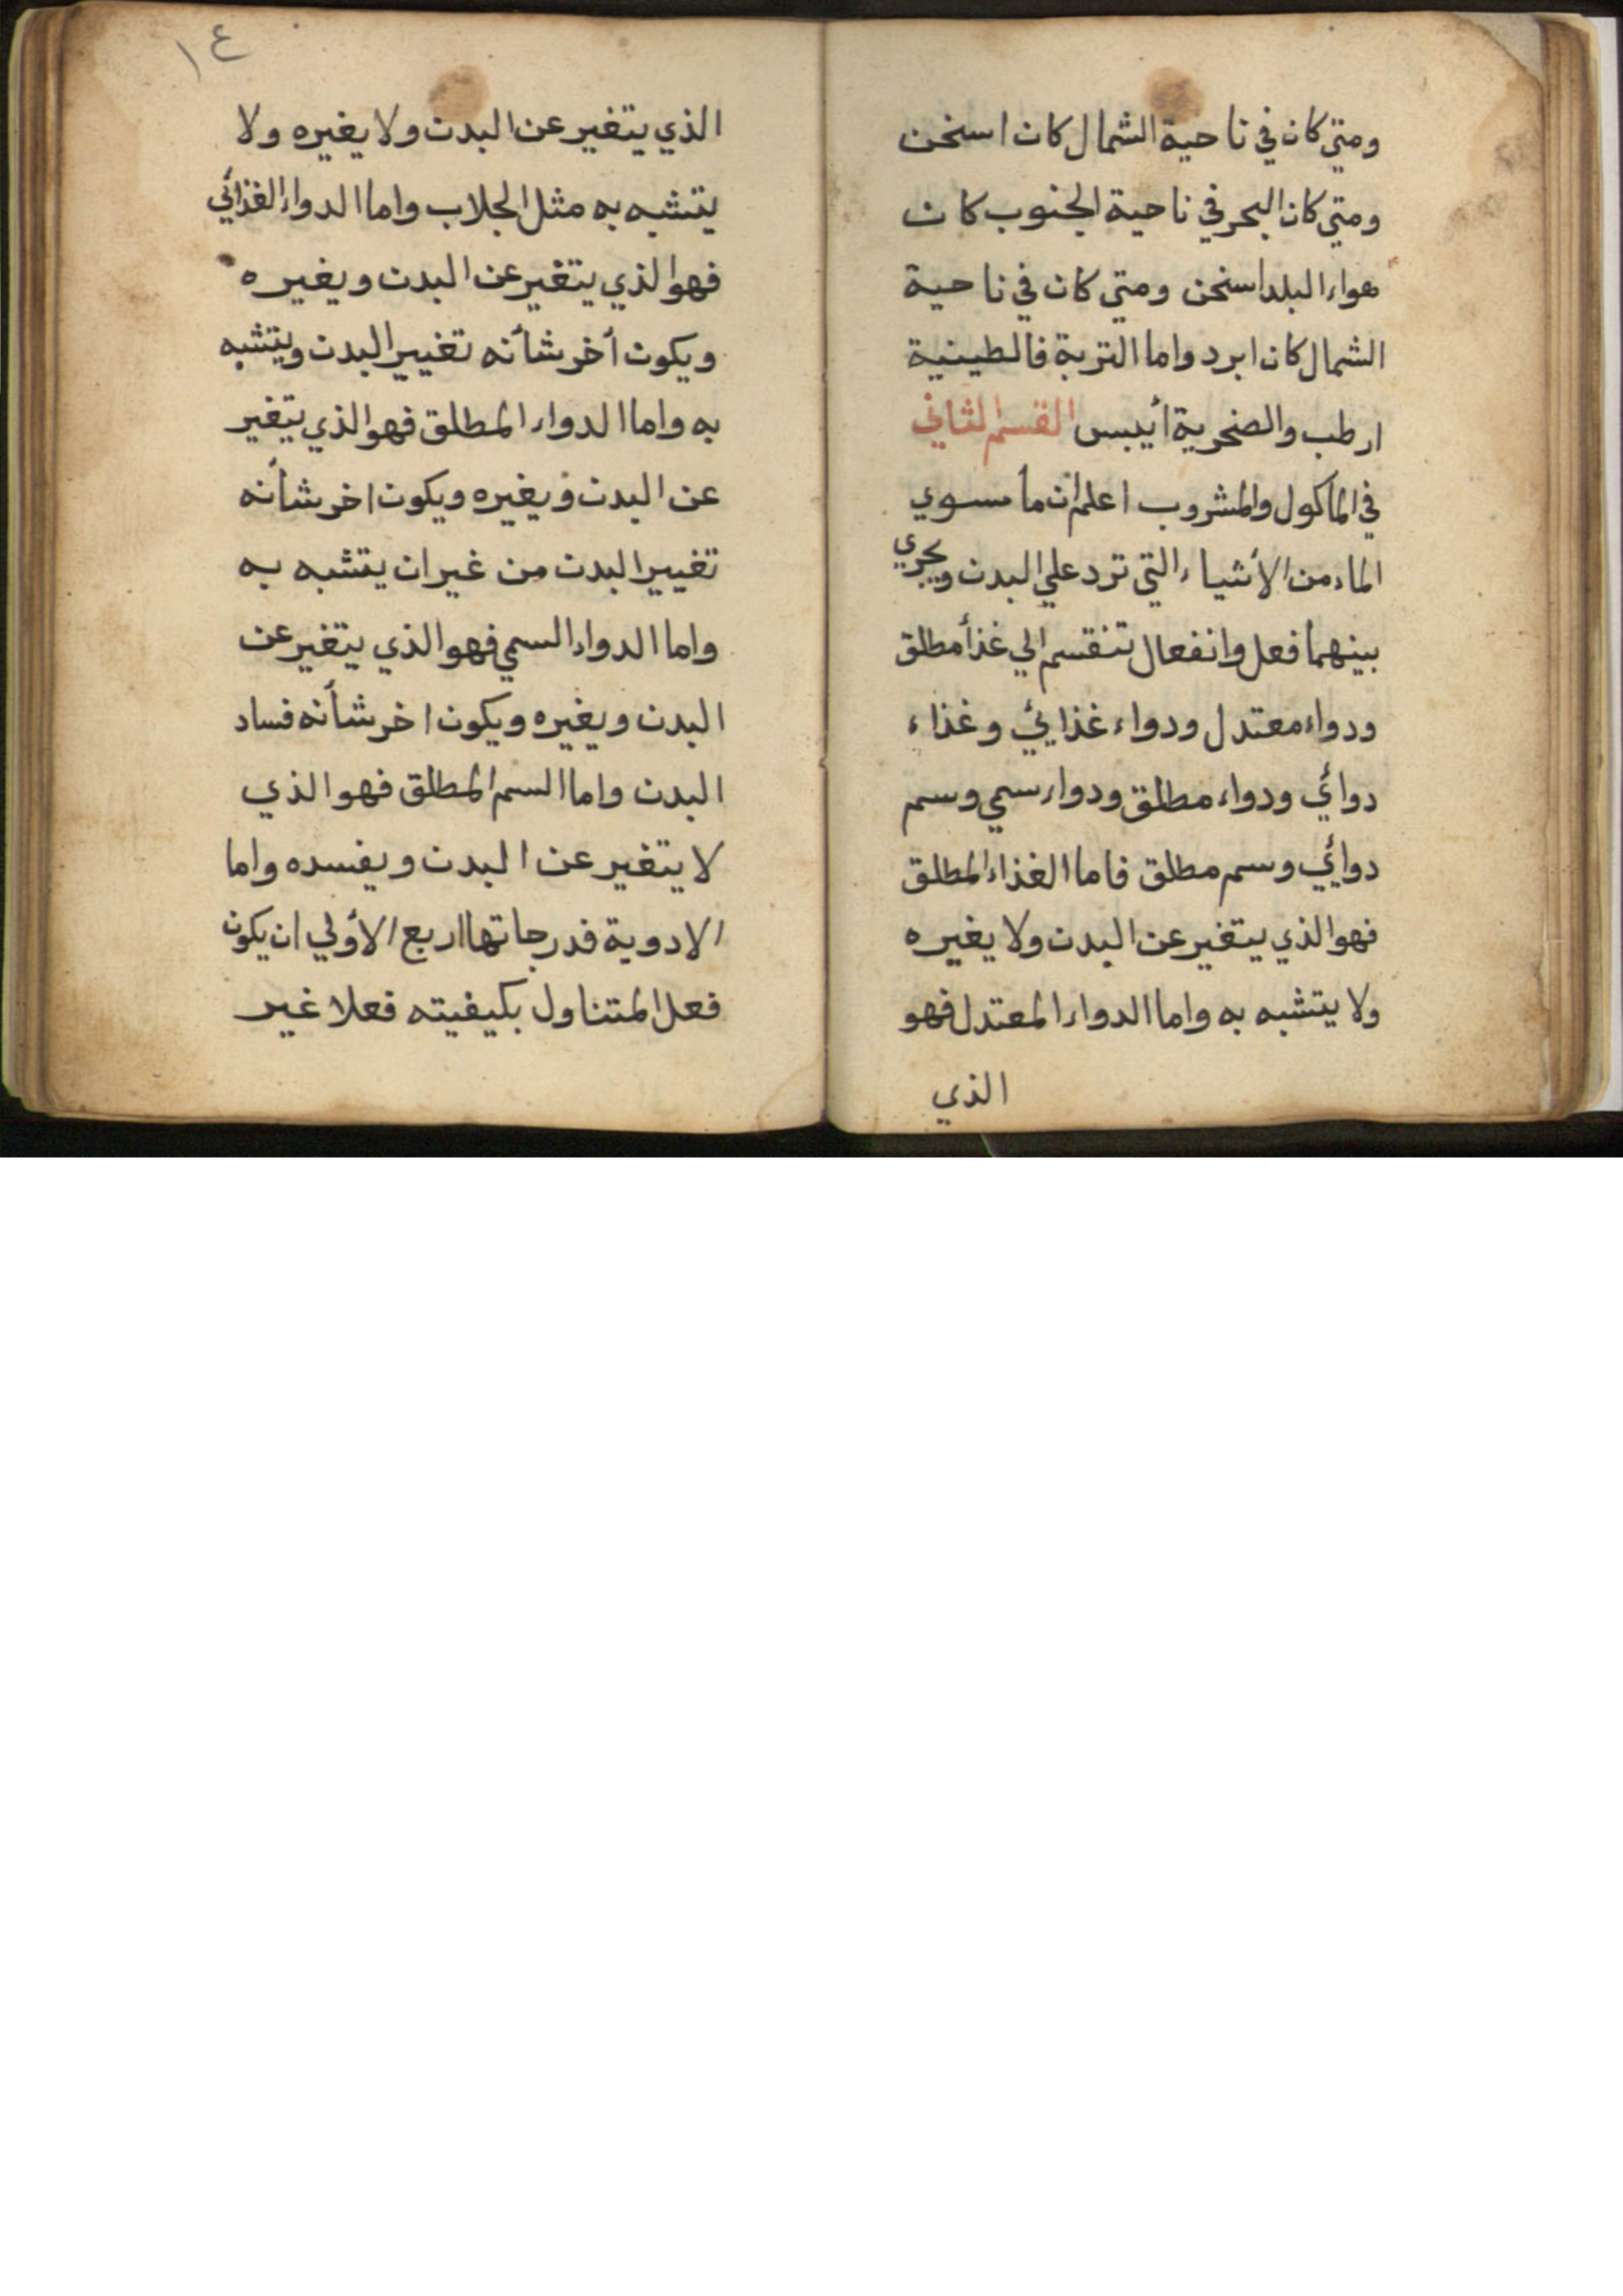 ومتي كان في ناحية الشمال كان اسخن
ومتي كان البحر في ناحية الجنوب كان
هواء البلد اسخن ومتي كان في ناحية
الشمال كان ابرد واما التربة فالطينية
ارطب والصخرية أيبس القسم الثاني
في المأكول والمشروب اعلم ان ما سوي
الماء من الأشياء التي ترد علي البدن ويجري
بينهما فعل وانفعال تنقسم الي غذأ مطلق
ودواء معتدل ودواء غذائي وغذاء
دوائي ودواء مطلق ودواء سمي وسم
دوائي وسم مطلق فاما الغذاء المطلق
فهو الذي يتغير عن البدن ولا يغيره
ولا يتشبه به واما الدواء المعتدل فهو
الذي
١٤
الذي يتغير عن البدن ولا يغيره ولا
يتشبه به مثل الجلاب واما الدواء الغذائي
فهو الذي يتغير عن البدن ويغيره
ويكون أخر شأنه تغيير البدن ويتشبه
به واما الدواء المطلق فهو الذي يتغير
عن البدن ويغيره ويكون اخر شأنه
تغيير البدن من غير ان يتشبه به
واما الدواء السمي فهو الذي يتغير عن
البدن ويغيره ويكون اخر شأنه فساد
البدن واما السم المطلق فهو الذي
لا يتغير عن البدن ويفسده واما
الادوية فدرجاتها اربع الأولي ان يكون
فعل المتناول بكيفيته فعلا غير